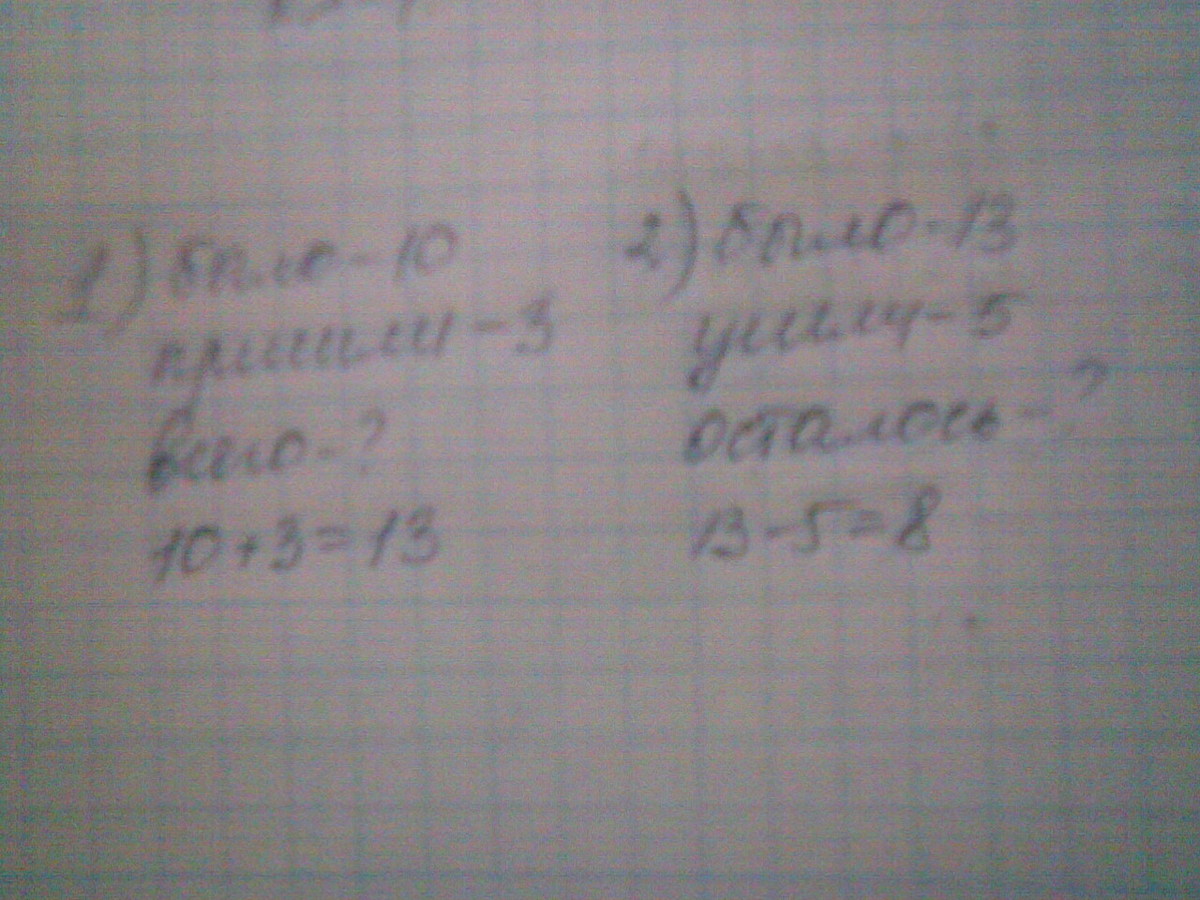 1) было-10
пришли-3
всего-?
10+3=13
2) было-13
ушли-5
осталось-?
13-5=8